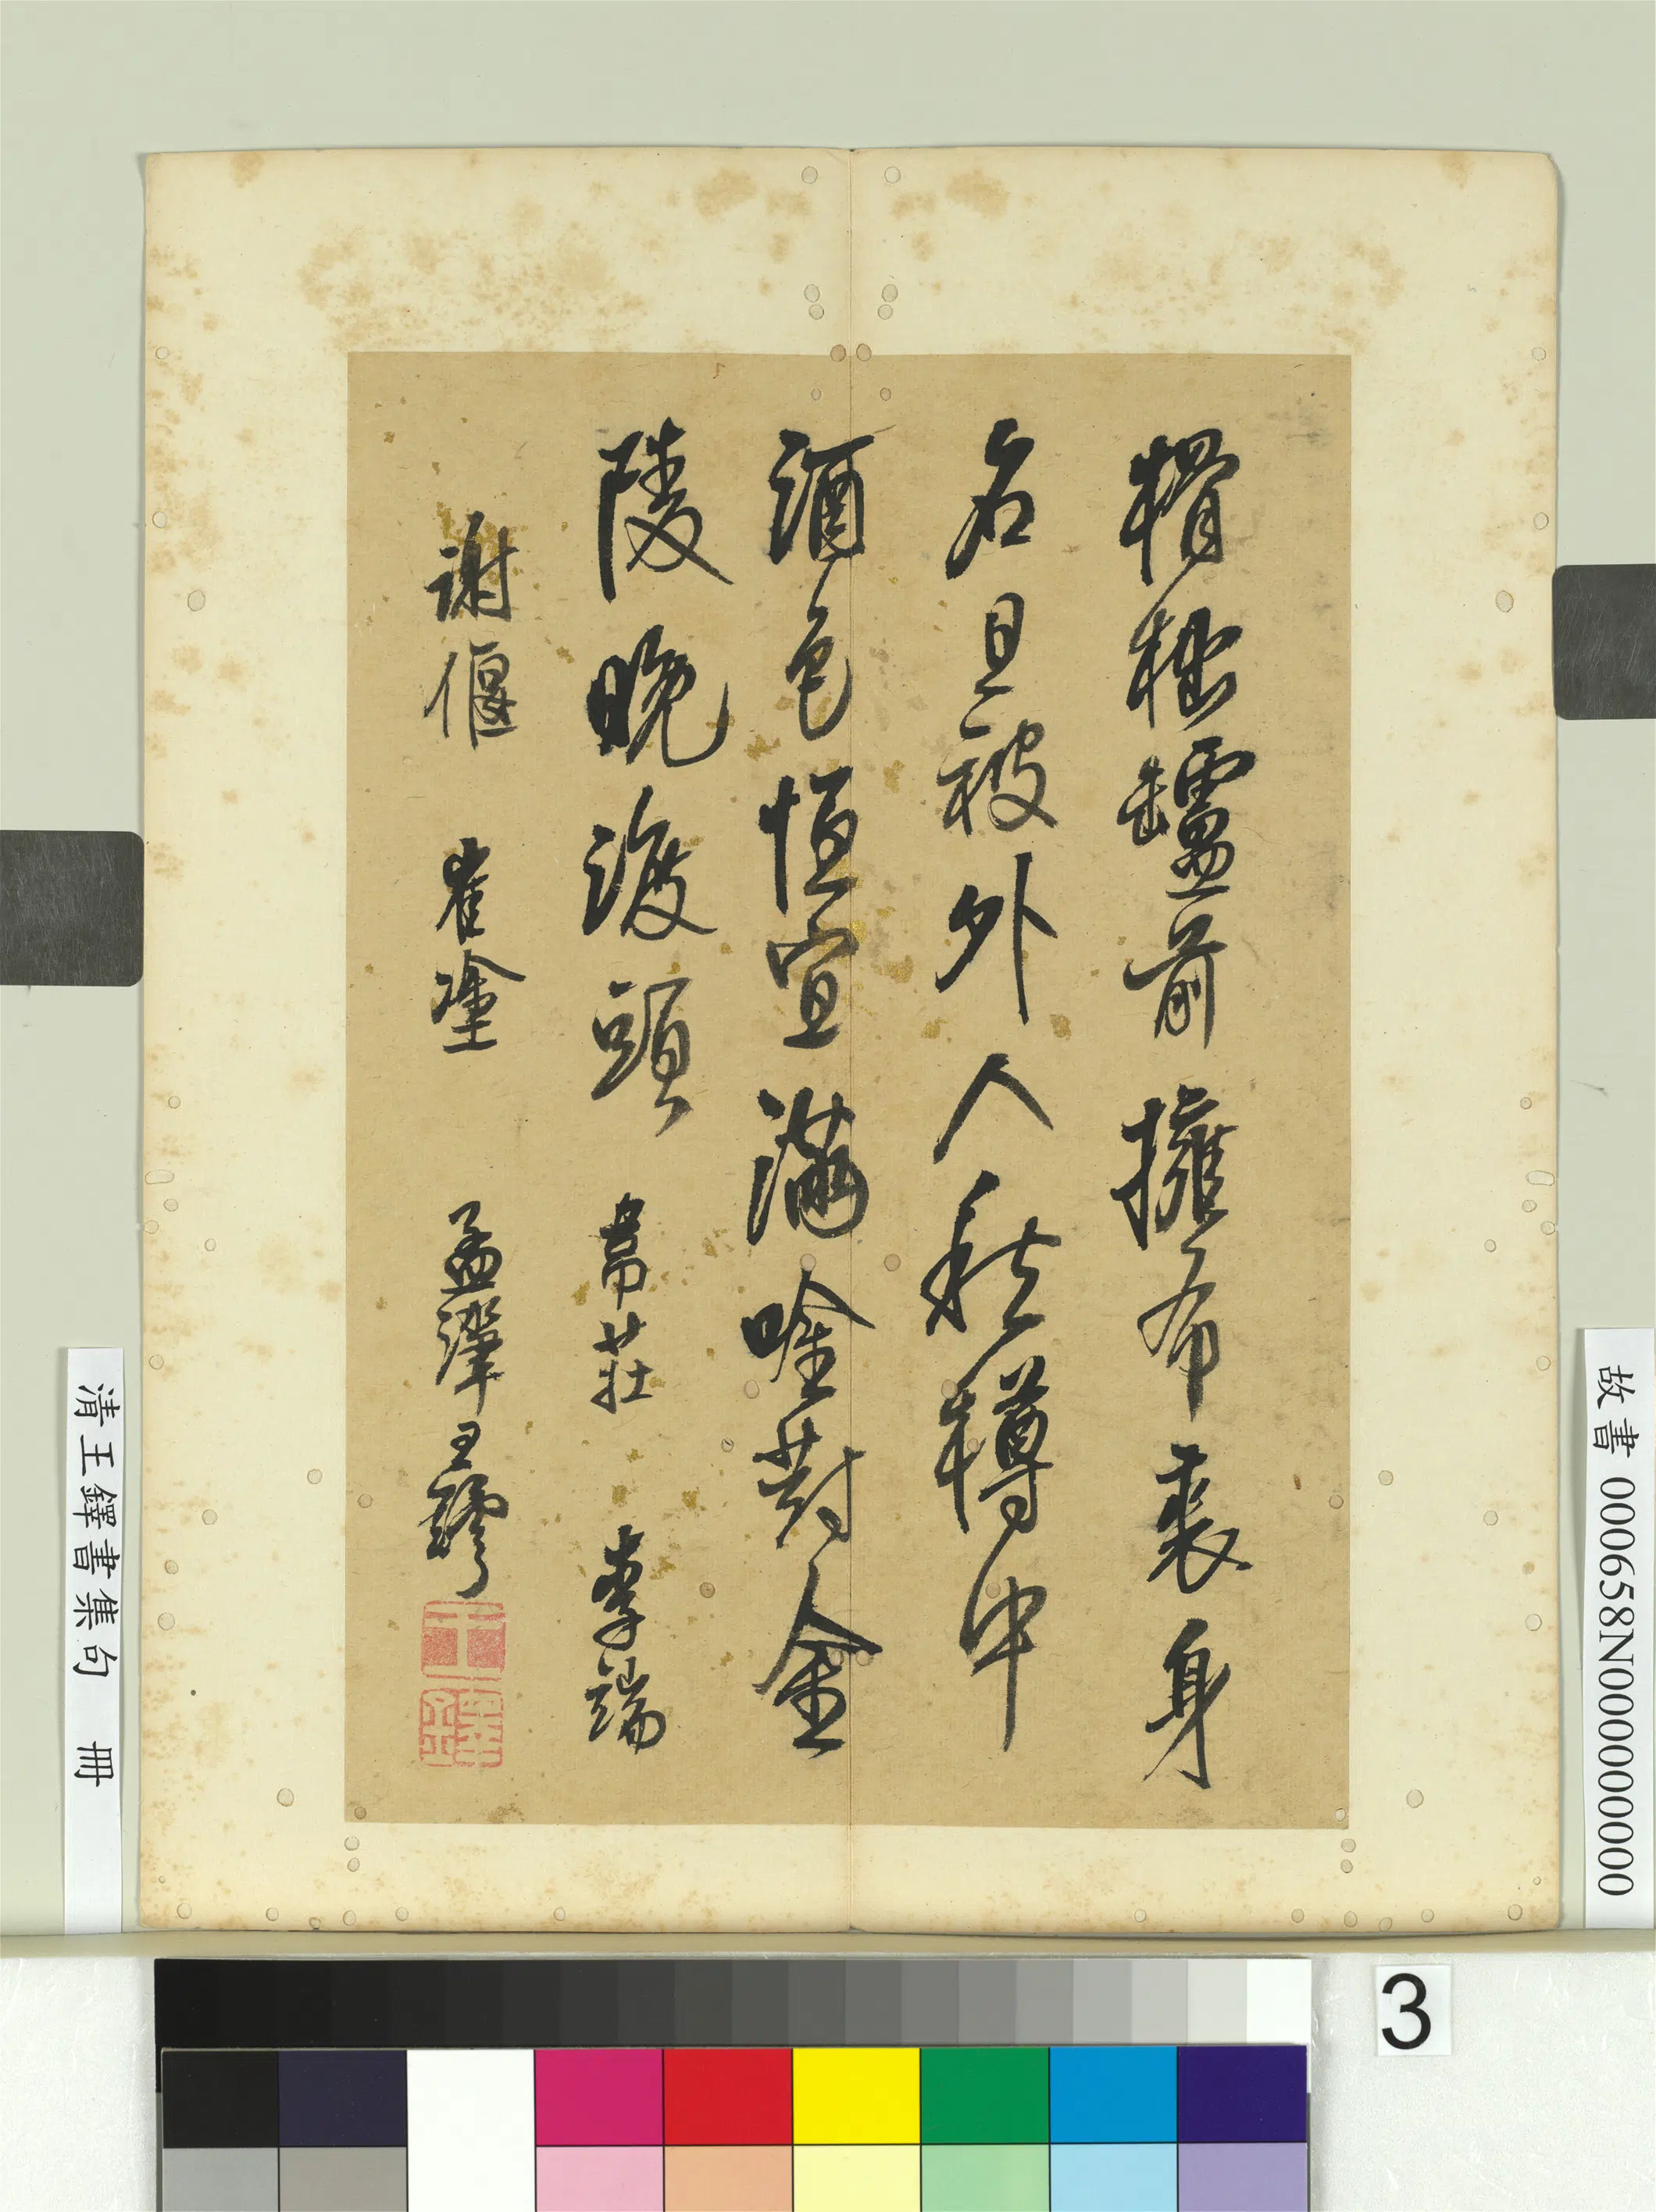 榾柮罏前擁布裘身
名且被外人樽中
酒色恒宜滿唫對金
陵晚渡頭 韋莊 李端
謝偃 崔塗 孟津王鐸
王
鐸
故書 000658N000000000
清王鐸書集句 冊
3